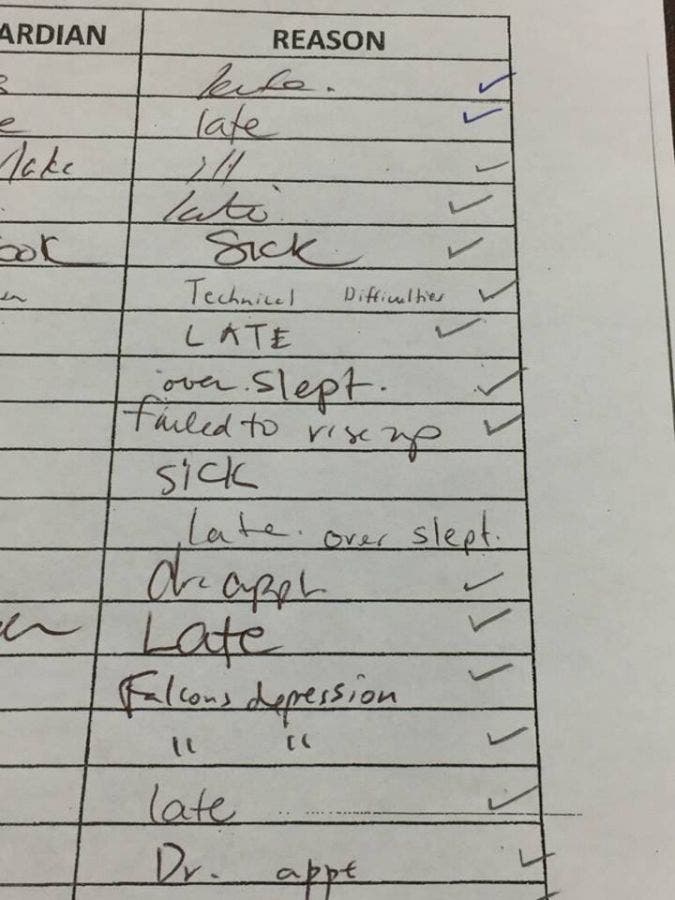 ARDIAN REASON
late.
e late
Make ill
late
ook Sick
en Technical Difficulties
LATE
over slept.
failed to rise up
sick
late. over slept.
dr. appt
en Late
Falcons depression
" "
late
Dr. appt